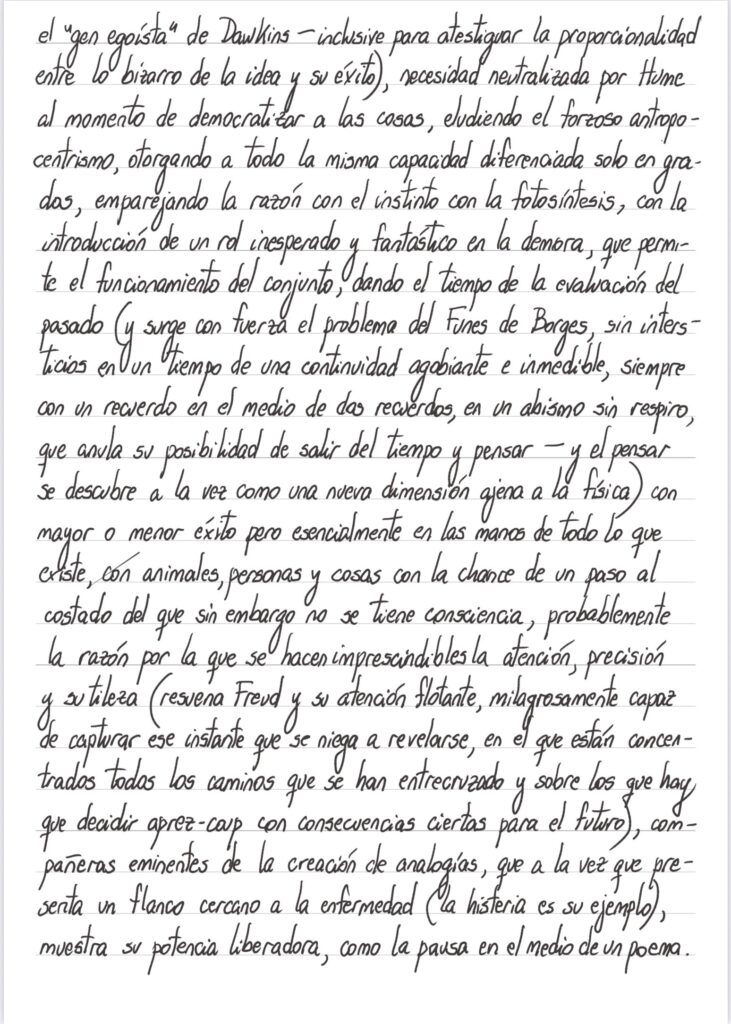 el "gen egoísta" de Dawkins – inclusive para atestiguar la proporcionalidad
entre lo bizarro de la idea y su éxito), necesidad neutralizada por Hume
al momento de democratizar a las cosas, eludiendo el forzoso antropo-
centrismo, otorgando a todo la misma capacidad diferenciada solo en gra-
dos, emparejando la razón con el instinto con la fotosíntesis, con la
introducción de un rol inesperado y fantástico en la demora, que permi-
te el funcionamiento del conjunto, dando el tiempo de la evaluación del
pasado (y surge con fuerza el problema del Funes de Borges, sin inters-
ticios en un tiempo de una continuidad agobiante e inmedible, siempre
con un recuerdo en el medio de dos recuerdos, en un abismo sin respiro,
que anula su posibilidad de salir del tiempo y pensar – y el pensar
se descubre a la vez como una nueva dimensión ajena a la física) con
mayor o menor éxito pero esencialmente en las manos de todo lo que
existe, con animales, personas y cosas con la chance de un paso al
costado del que sin embargo no se tiene consciencia, probablemente
la razón por la que se hacen imprescindibles la atención, precisión
y sutileza (resuena Freud y su atención flotante, milagrosamente capaz
de capturar ese instante que se niega a revelarse, en el que están concen-
trados todos los caminos que se han entrecruzado y sobre los que hay
que decidir aprez-coup con consecuencias ciertas para el futuro), com-
pañeras eminentes de la creación de analogías, que a la vez que pre-
senta un flanco cercano a la enfermedad (la histeria es su ejemplo),
muestra su potencia liberadora, como la pausa en el medio de un poema.